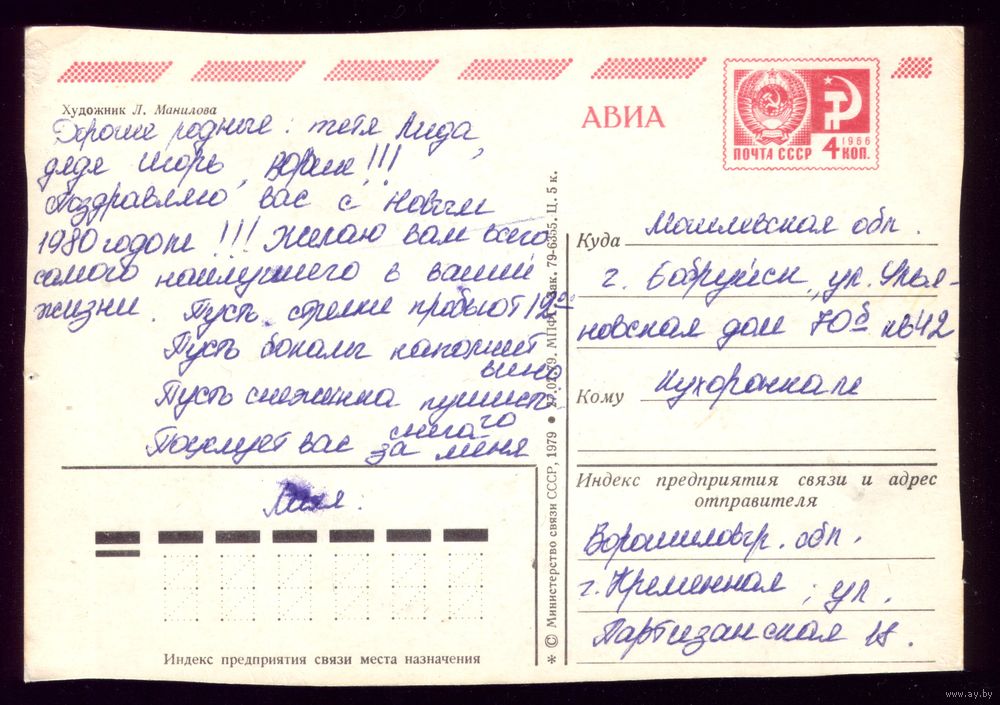 Художник Л. Манилова
АВИА
ПОЧТА СССР
1966
4 КОП.
Дорогие родные: тетя Лида,
дядя Игорь, !!!
Поздравляю вас с Новым
1980 годом !!! Желаю вам всего
самого наилучшего в вашей
жизни. Пусть стрелки пробьют 12⁰⁰
Пусть бокалы наполнит
вино
Пусть снежинка пушисто-
го
снега
Поцелует вас за меня
Лиля.
Индекс предприятия связи места назначения
* © Министерство связи СССР, 1979 ● 27.01.79. МПФГ. Зак. 79-6355. Ц. 5 к.
Куда Могилевская обл.
г. Бобруйск, ул. Улья-
новская дом 70б кв 42
Кому
Индекс предприятия связи и адрес
отправителя
Ворошиловгр. обл.
г. Кременная, ул.
Партизанская 18.
www.ay.by